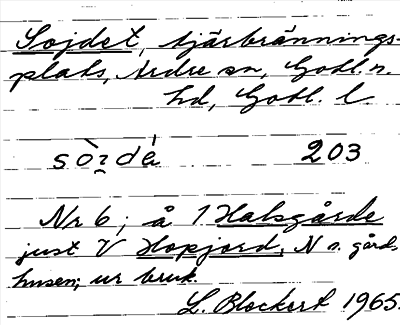 Sojdet, tjärbrännings-
plats, Ardre sn, Gotl. n.
hd, Gotl. l.
sòi̯dé 203
Nr 6; å 1 Halsgårde
just V Hopjord, N n. gårds-
husen; ur bruk.
L. Blockert 1965.